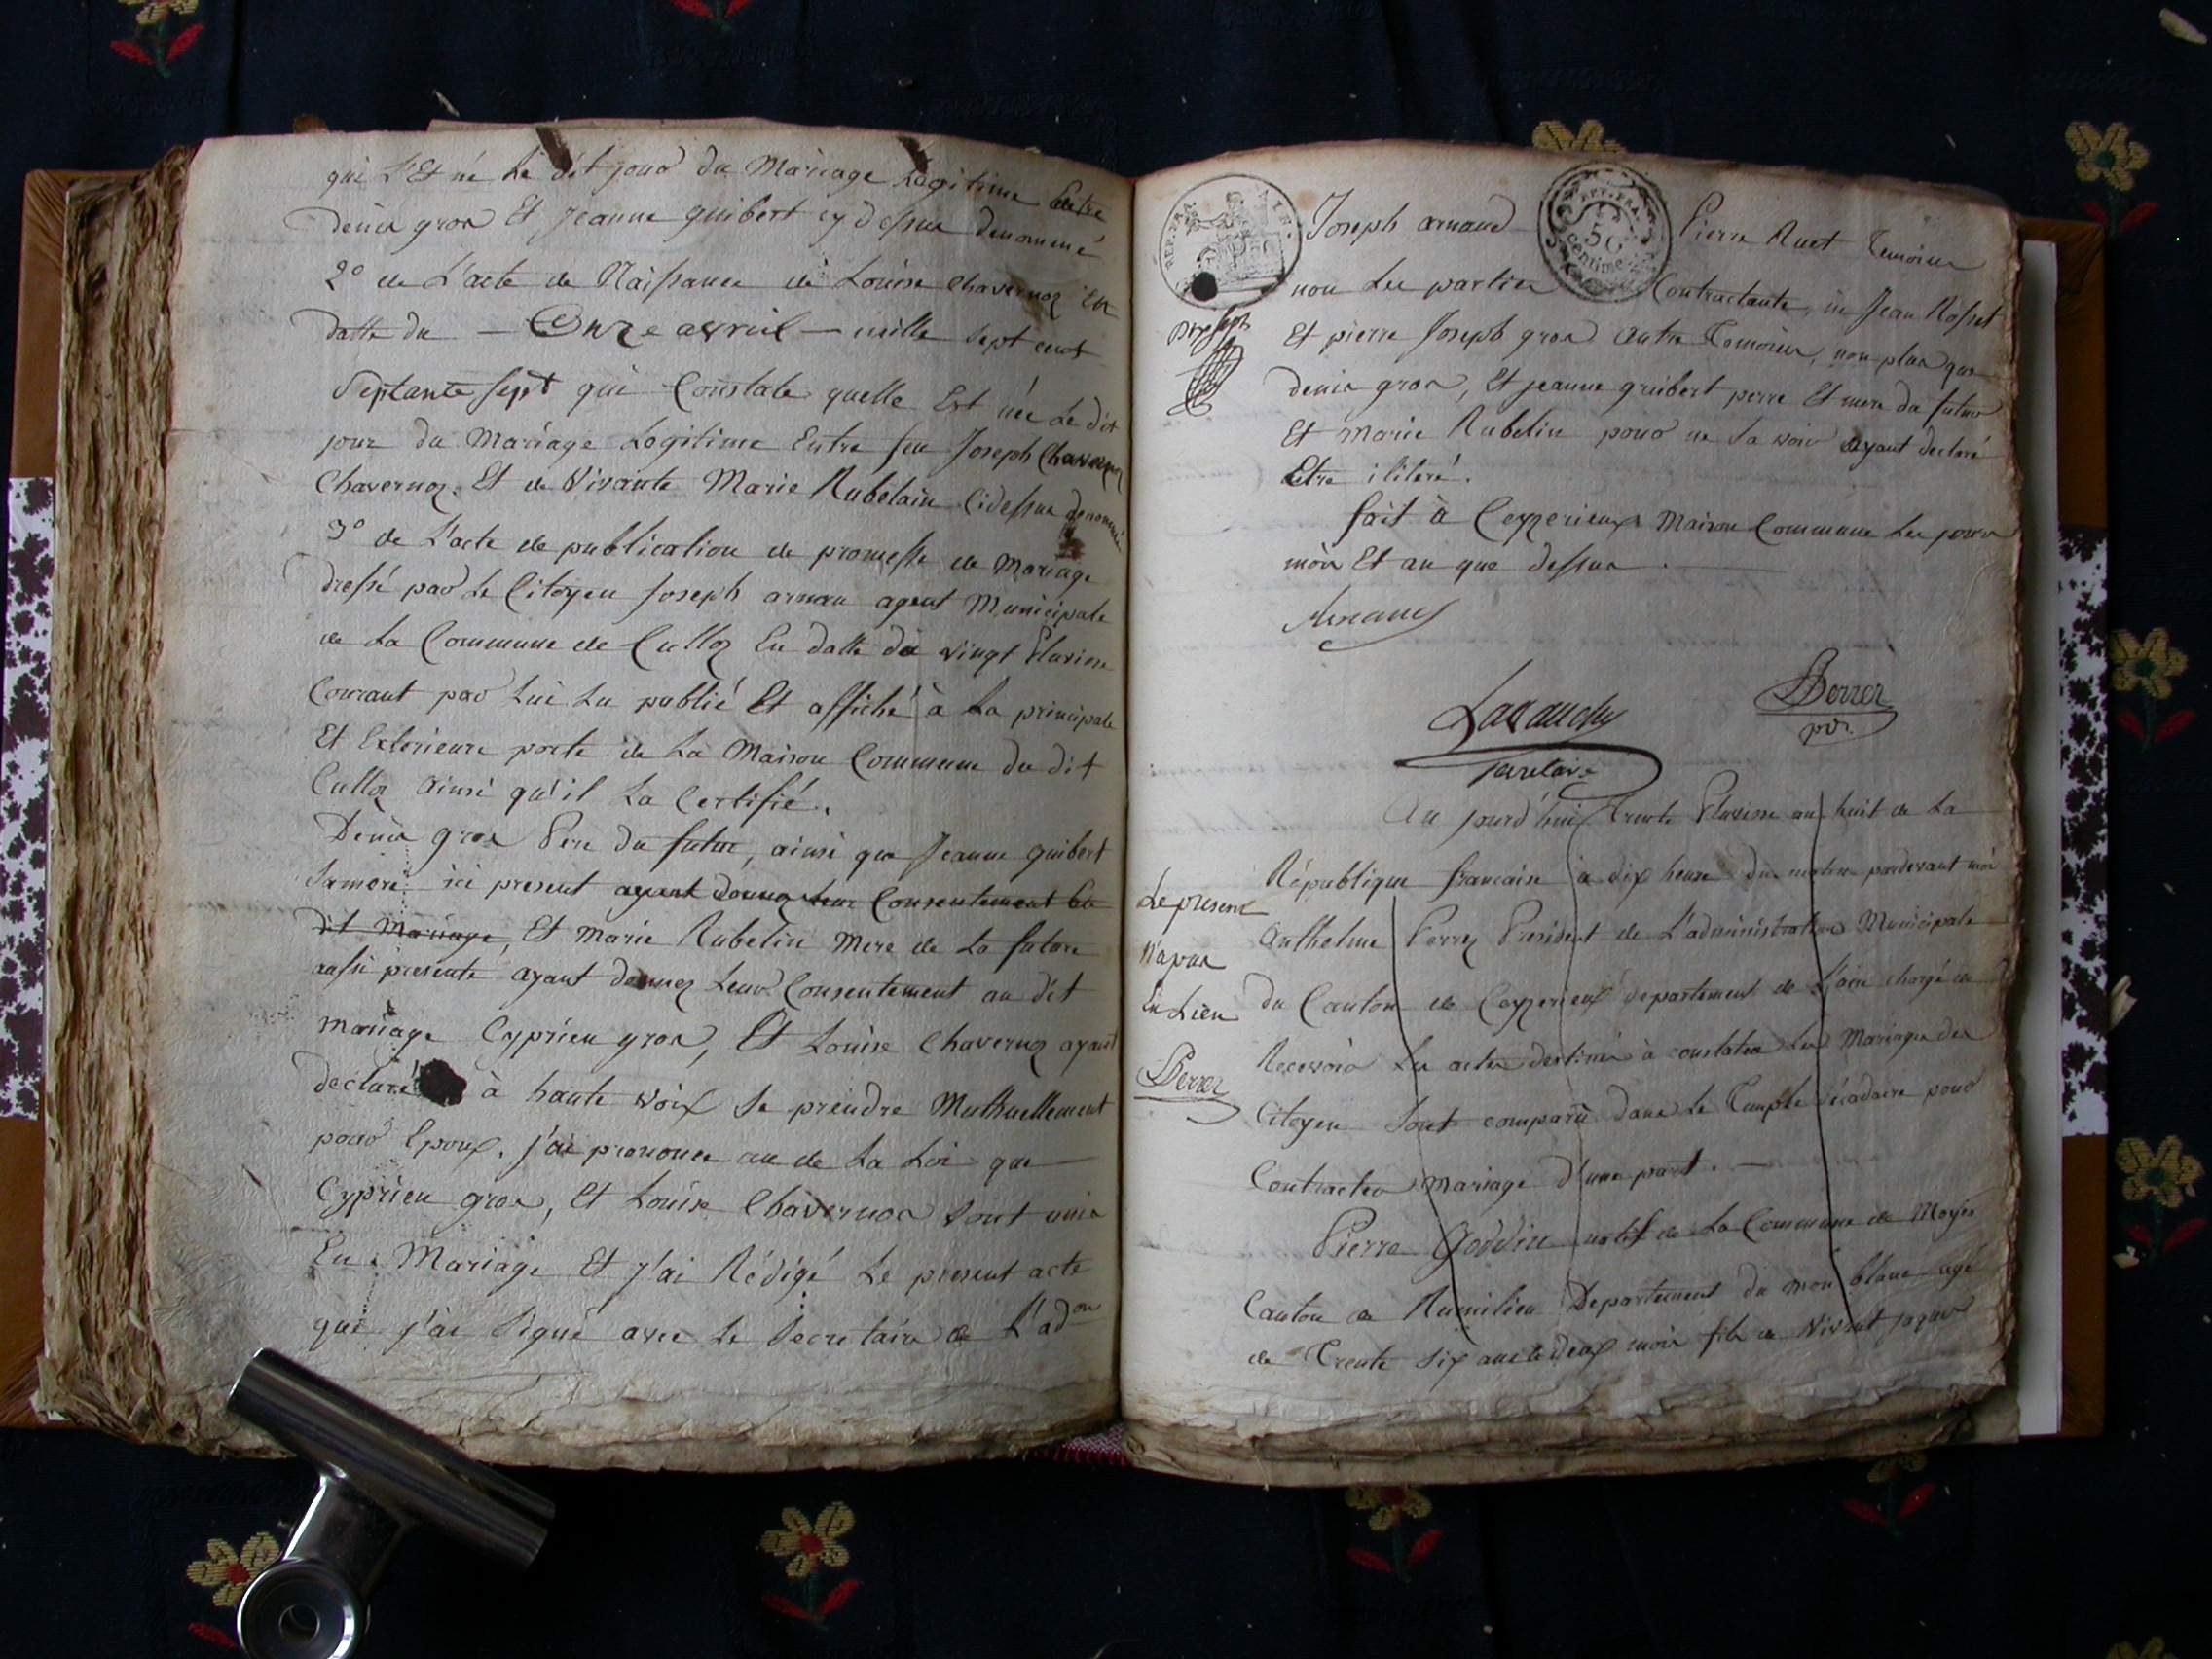 qui L'Et né Le dit jour du Mariage Légitime Entre
denis gros Et Jeanne guibert cy dessus denommé
2º de L'acte de Naissance de Louise Chavernoz En
datte du — Onze avril — mille sept cent
Septante sept qui Constate quelle Est née Le dit
jour du Mariage Legitime Entre feu Joseph Chavernoz
Chavernoz. Et de Vivante Marie Rubelain Cidessus denommé
3º de L'acte de publication de promesse de Mariage
dressé par Le Citoyen Joseph arnau agent Municipale
de La Commune de Culloz En datte du vingt Pluviose
Courant par Lui Lu publié Et affiché à La principale
Et Exterieure porte de La Maison Commune du dit
Culloz Ainsi qu'il La Certifié.
Denis gros Pere du futur, ainsi que Jeanne guibert
Samere ici present ayant donnez leur Consentement au
dit Mariage, Et Marie Rubelin Mere de La future
aussi presente ayant donnez Leur Consentement au dit
mariage Cyprien gros, Et Louise Chavernoz ayant
declaré à haute voix Se prendre Muthuellement
pour Epoux. j'ai prononcé au de La Loi que
Cyprien gros, Et Louise Chavernos Sont unis
En Mariage Et j'ai Rédigé Le present acte
que j'ai Signé avec Le Secretaire de L'adon
REP. FRA
REP. FRA.
50
Centime
Joseph arnaud Pierre Ruet Temoins
non Les parties Contractante, ni Jean Rosset
Dix sept
Et pierre Joseph gros autre Temoins, non plus que
denis gros, Et jeanne guibert perre Et mere du futur
Et Marie Rubelin pour ne Savoir ayant declaré
Etre ilitéré.
fait à Ceyzerieux Maison Commune Les jour
mois Et an que dessus.
Arnaud
Lavauchy
Secretaire
Perrez
pdt
Au jourd'hui trente Pluviose an huit de La
République francaise à dix heure du matin pardevant moi
Anthelme Perrez President de L'administration Municipale
du Canton de Ceyzerieux departement de L'ain chargé de
Recevoir Les actes destinés à constater Les Mariages des
Citoyen Sont comparu dans Le Temple décadaire pour
Contracter Mariage d'une part. —
Pierre Goddin natif de La Commune de Moyes
Canton de Rumilieu Departement du mon blanc agé
de Trente Six ans et deux mois fils de Vivant jaques
Le present
N'apas
Eu Lieu
Perrez